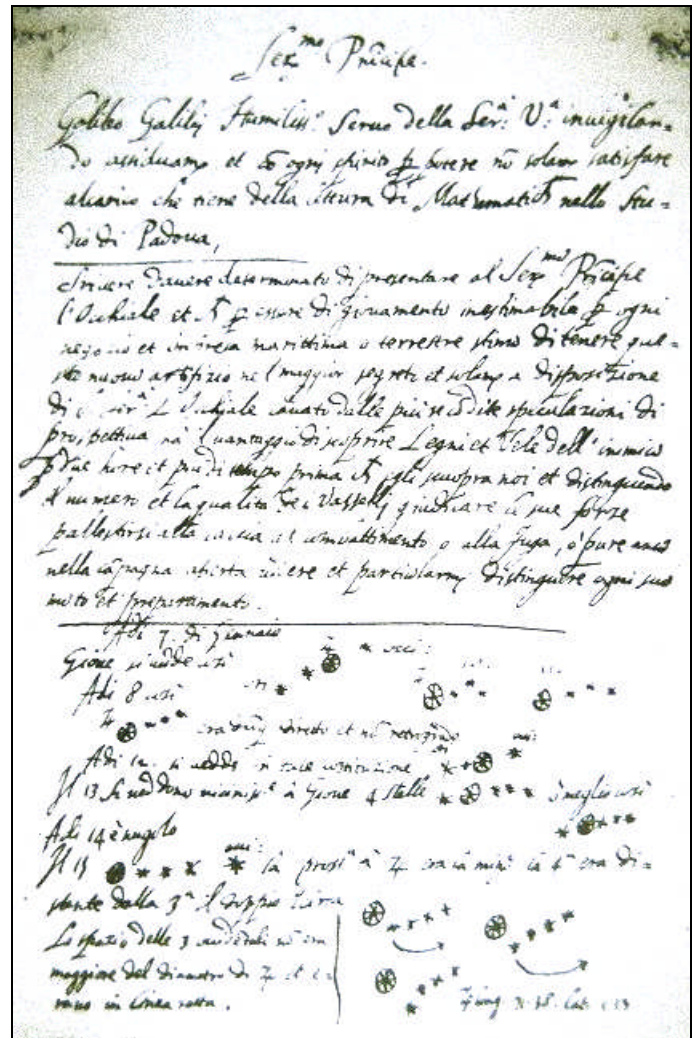 Ser.mo Principe.
Galileo Galilej Humiliss.o Seruo della Ser.a V.a inuigilan=
do assiduam.te et cõ ogni spirito p potere nõ solam.te satisfare
alcarico che tiene della lettura di Matematich nello Stu=
dio di Padoua,
Scriuere dauere determinato di presentare al Ser.mo Principe
l'Occhiale et p essere di giouamento inestimabile p ogni
negozio et impresa marittima o terrestre stimo di tenere que=
sto nuouo artifizio nel maggior segreto et solam.te a disposizione
di Ser.a L'Occhiale cauato dalle più recõdite speculazioni di
prospettiua ha l uantaggio di scoprire Legni et Vele dell' inimico
p due hore et più di tempo prima ch egli scuopra noi et distinguendo
il numero et la qualita de i Vasselli giudicare le sue forze
pallestirsi alla caccia al combattimento o alla fuga, o pure anco
nella cãpagna aperta uedere et particolarm.te distinguere ogni suo
moto et preparamento.
Adi 7. di Gennaio
Gioue si uedde cosi
Adi 8 cosi
era diretto et nõ retrogrado
Adi 12. si uedde in tale costituzione
Il 13 si ueddono uicinis.e à Gioue 4 stelle ò meglio cosi
Adi 14 è nugolo
Il 15 la pross.a à ♃ era la min.e la 4.a era di=
stante dalla 3.a il doppio
Lo spazio delle 3 occidentali nõ era
maggiore del diametro di ♃ et e=
rano in linea retta.